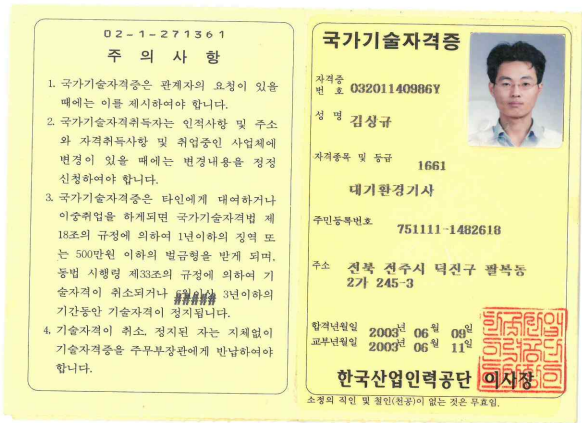 02-1-271361
주 의 사 항
1. 국가기술자격증은 관계자의 요청이 있을
때에는 이를 제시하여야 합니다.
2. 국가기술자격취득자는 인적사항 및 주소
와 자격취득사항 및 취업중인 사업체에
변경이 있을 때에는 변경내용을 정정
신청하여야 합니다.
3. 국가기술자격증은 타인에게 대여하거나
이중취업을 하게되면 국가기술자격법 제
18조의 규정에 의하여 1년이하의 징역 또
는 500만원 이하의 벌금형을 받게 되며,
동법 시행령 제33조의 규정에 의하여 기
술자격이 취소되거나 3년이하의
기간동안 기술자격이 정지됩니다.
4. 기술자격이 취소, 정지된 자는 지체없이
기술자격증을 주무부장관에게 반납하여야
합니다.
국가기술자격증
자격증
번 호 03201140986Y
성 명 김상규
자격종목 및 등급
1661
대기환경기사
주민등록번호
751111-1482618
주소 전북 전주시 덕진구 팔복동
2가 245-3
합격년월일 2003년 06월 09일
교부년월일 2003년 06월 11일
한국산업인력공단 이사장
소정의 직인 및 철인(천공)이 없는 것은 무효임.